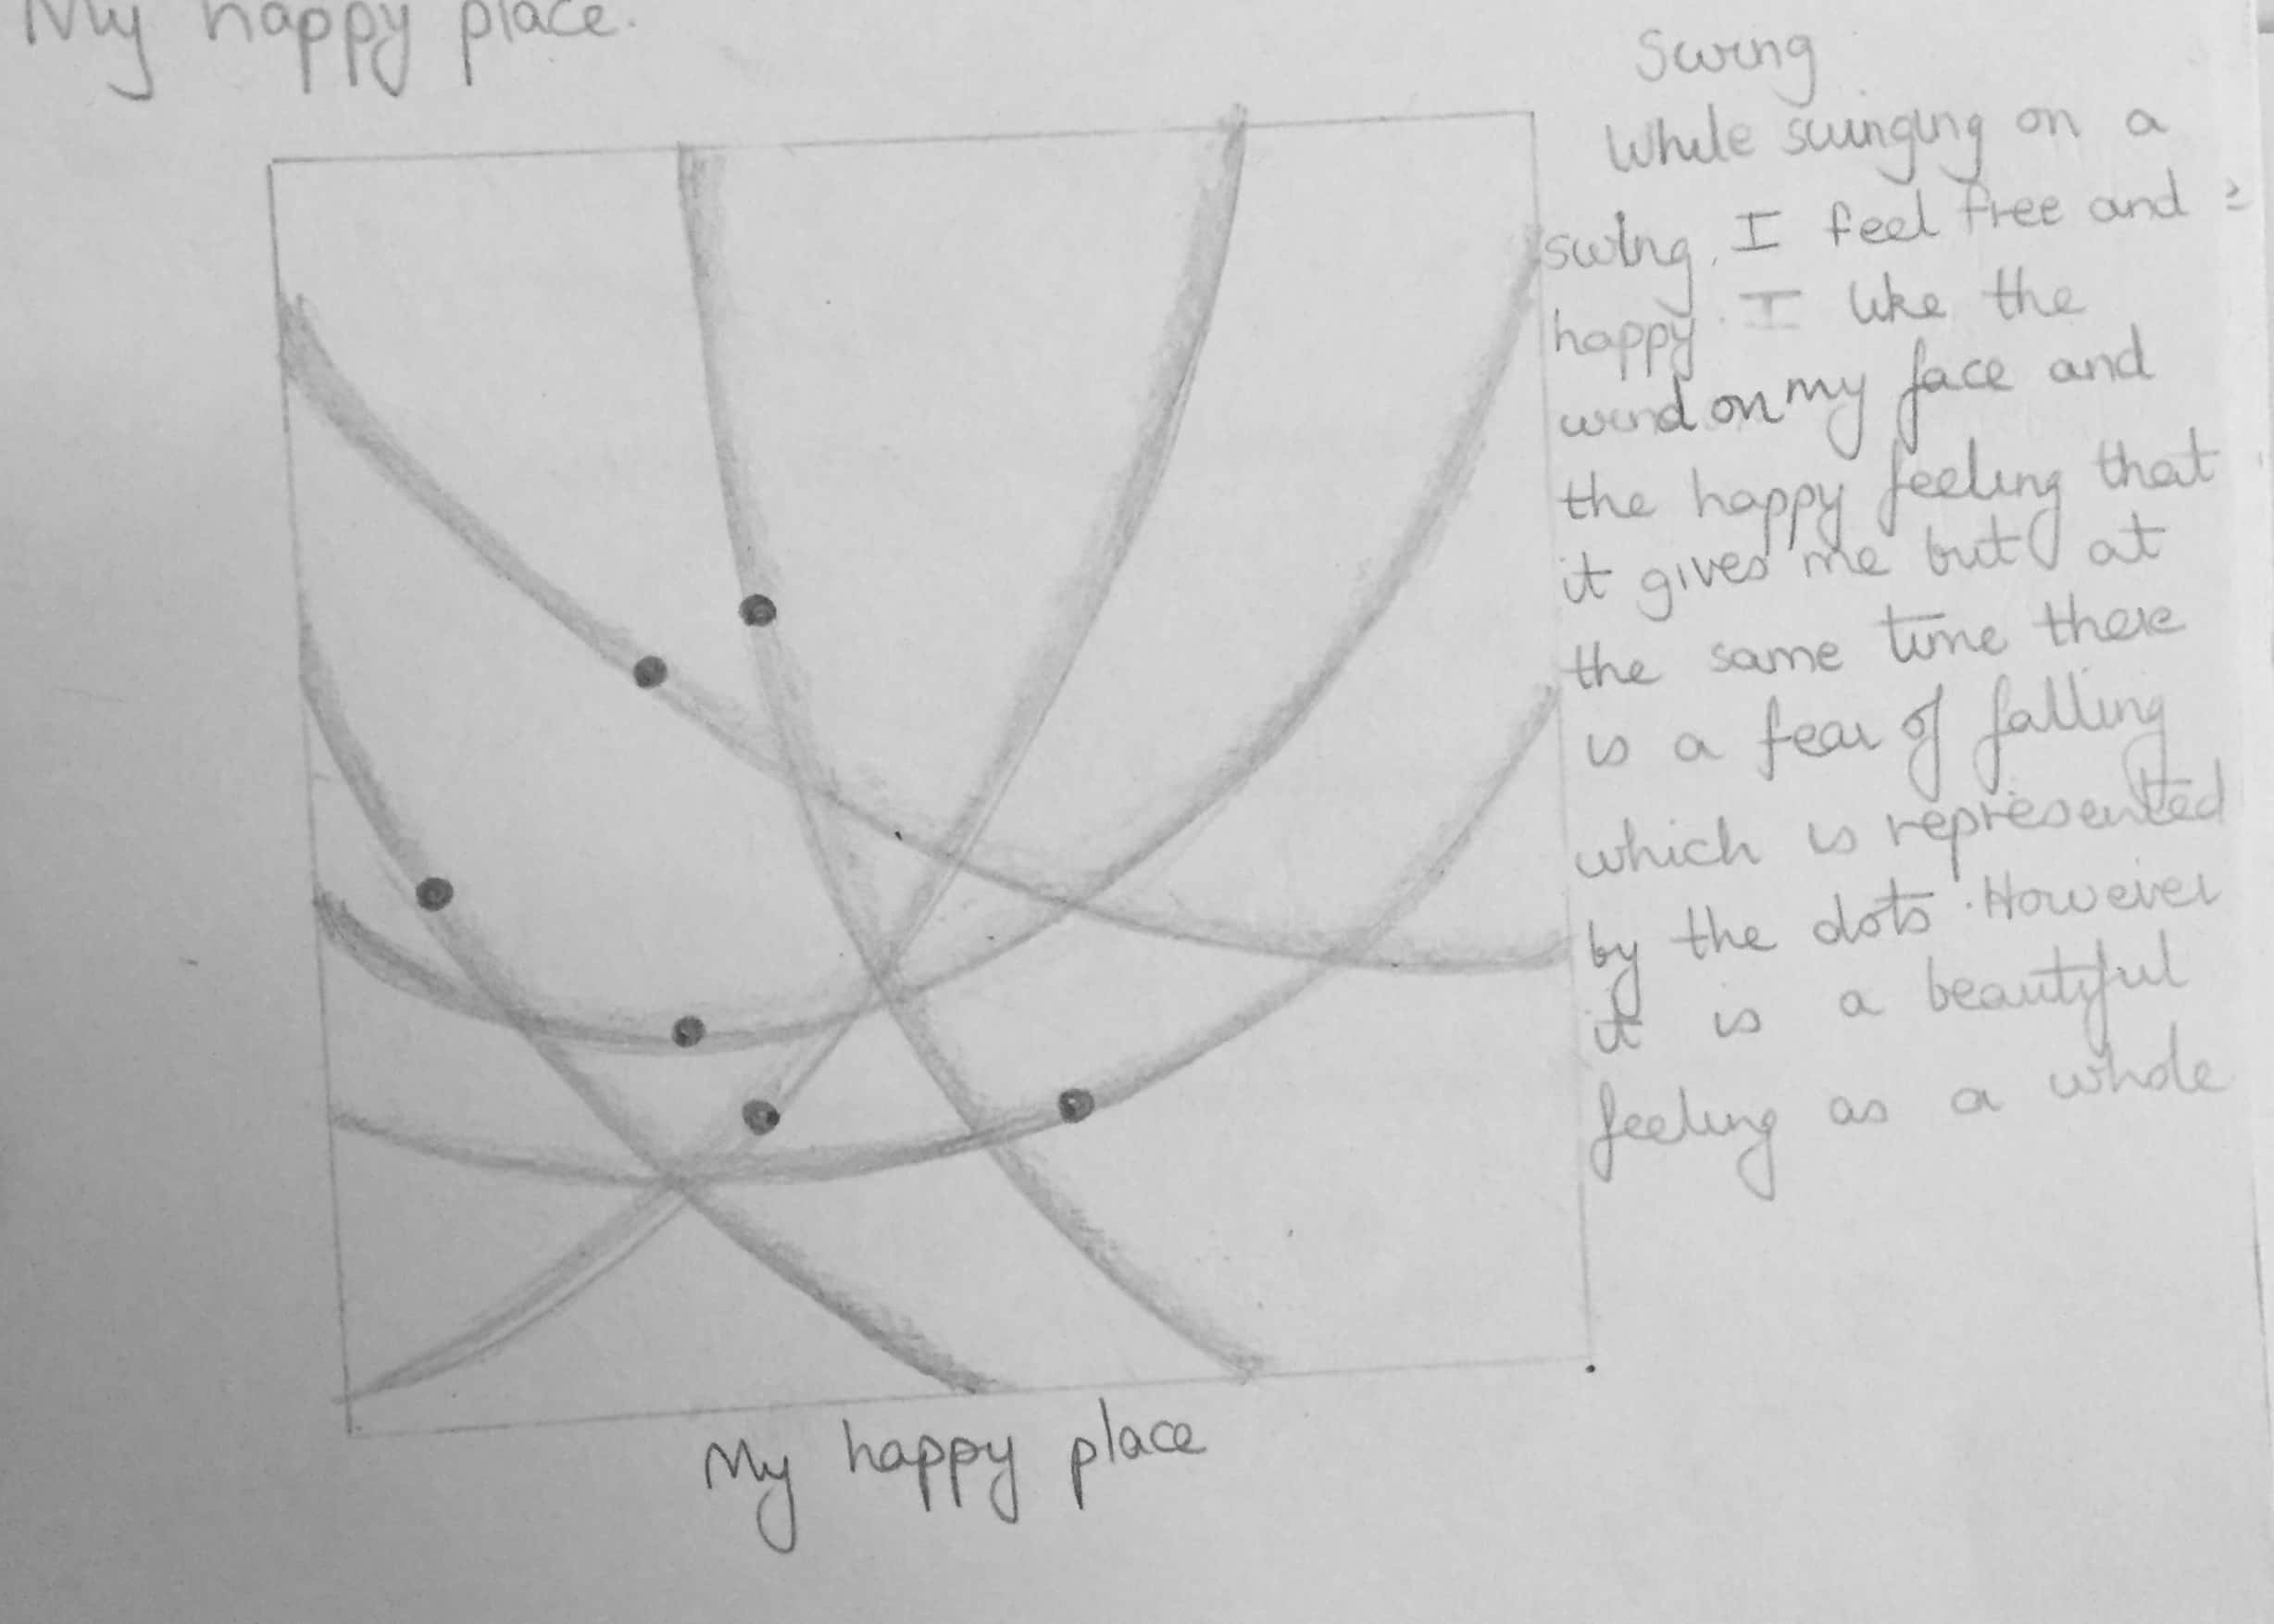 My happy place.
Swing
While swinging on a
swing, I feel free and
happy. I like the
wind on my face and
the happy feeling that
it gives me but at
the same time there
is a fear of falling
which is represented
by the dots. However
it is a beautiful
feeling as a whole
My happy place